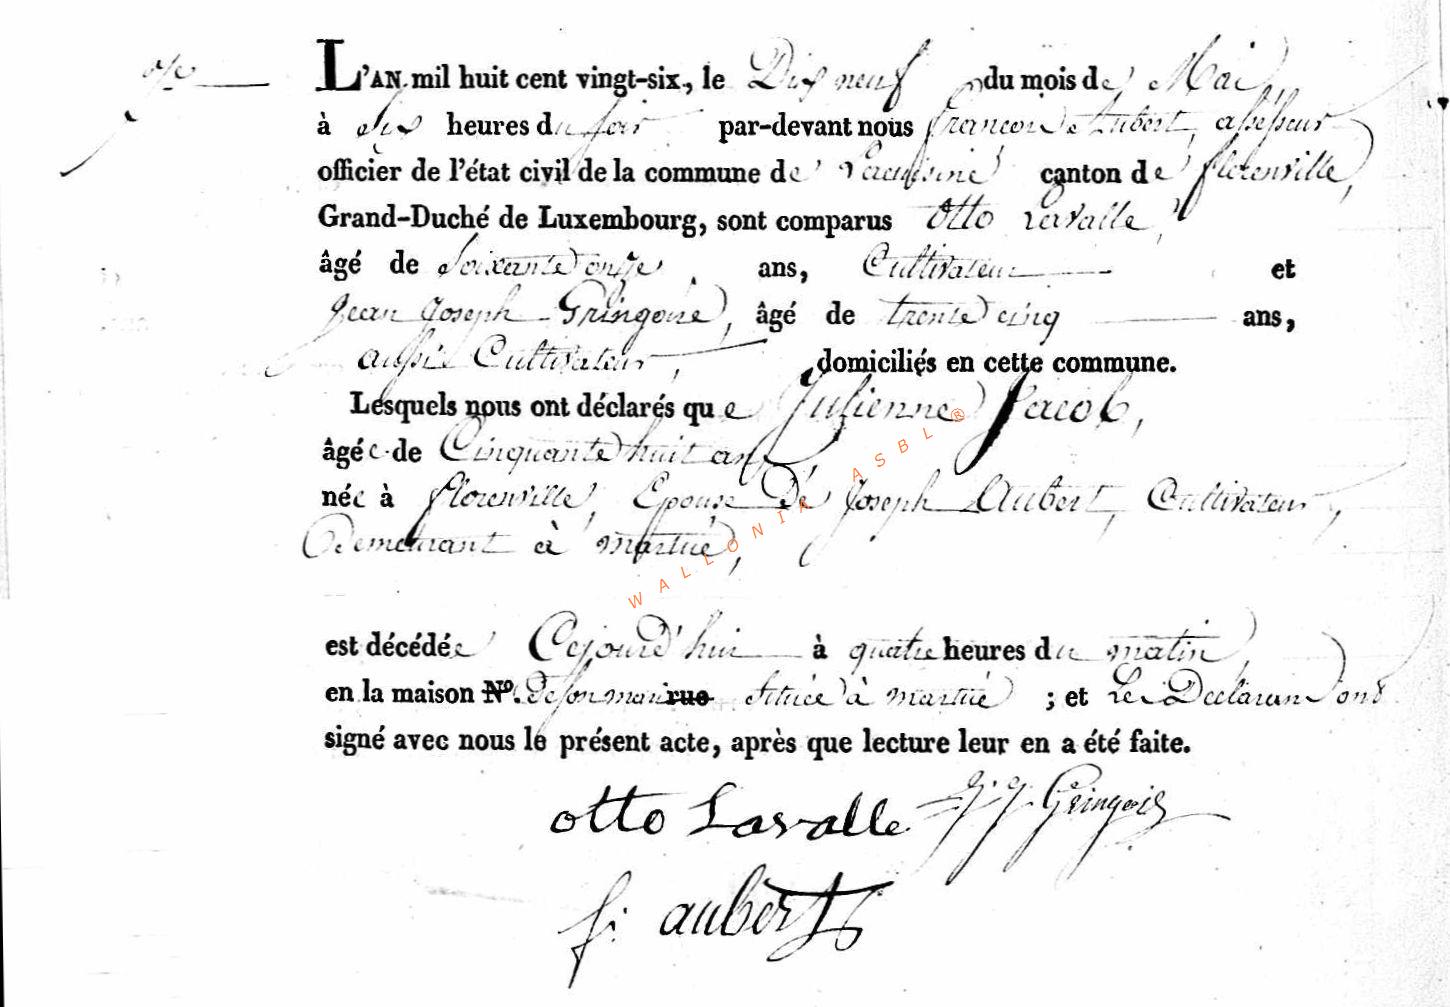 L'AN mil huit cent vingt-six, le Dix neuf du mois de Mai,
à Six heures du soir par-devant nous françois Aubert, assesseur
officier de l'état civil de la commune de Lacuisine canton de florenville,
Grand-Duché de Luxembourg, sont comparus Otto Lavalle,
âgé de Soixante onze ans, Cultivateur et
Jean Joseph Gringoire, âgé de trente cinq ans,
aussi Cultivateur, domiciliés en cette commune.
Lesquels nous ont déclarés que Julienne Jacob,
âgée de Cinquante huit ans,
née à florenville, Epouse De Joseph Aubert, Cultivateur,
Demeurant à martué,
est décédée Cejourd'hui à quatre heures du matin,
en la maison N°. de son mari rue Située à martué ; et Les Declarans ont
signé avec nous le présent acte, après que lecture leur en a été faite.
otto Lavalle J. J. Gringoire
f: aubert
WALLONIA ASBL ®